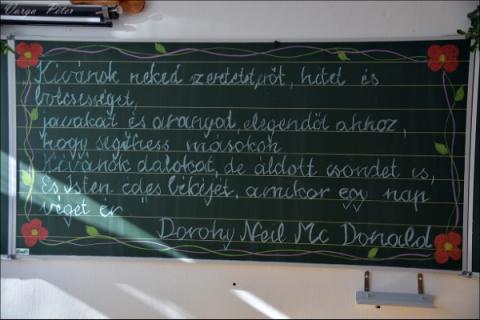 Varga Péter
Kívánok neked szeretet, erőt, hitet és
bölcsességet,
javakat és aranyat, elegendőt ahhoz,
hogy segíthess másokon.
Kívánok dalokat, de áldott csöndet is,
És Isten édes békéjét, amikor egy nap
véget ér "
Dorohy Neil Mc Donald